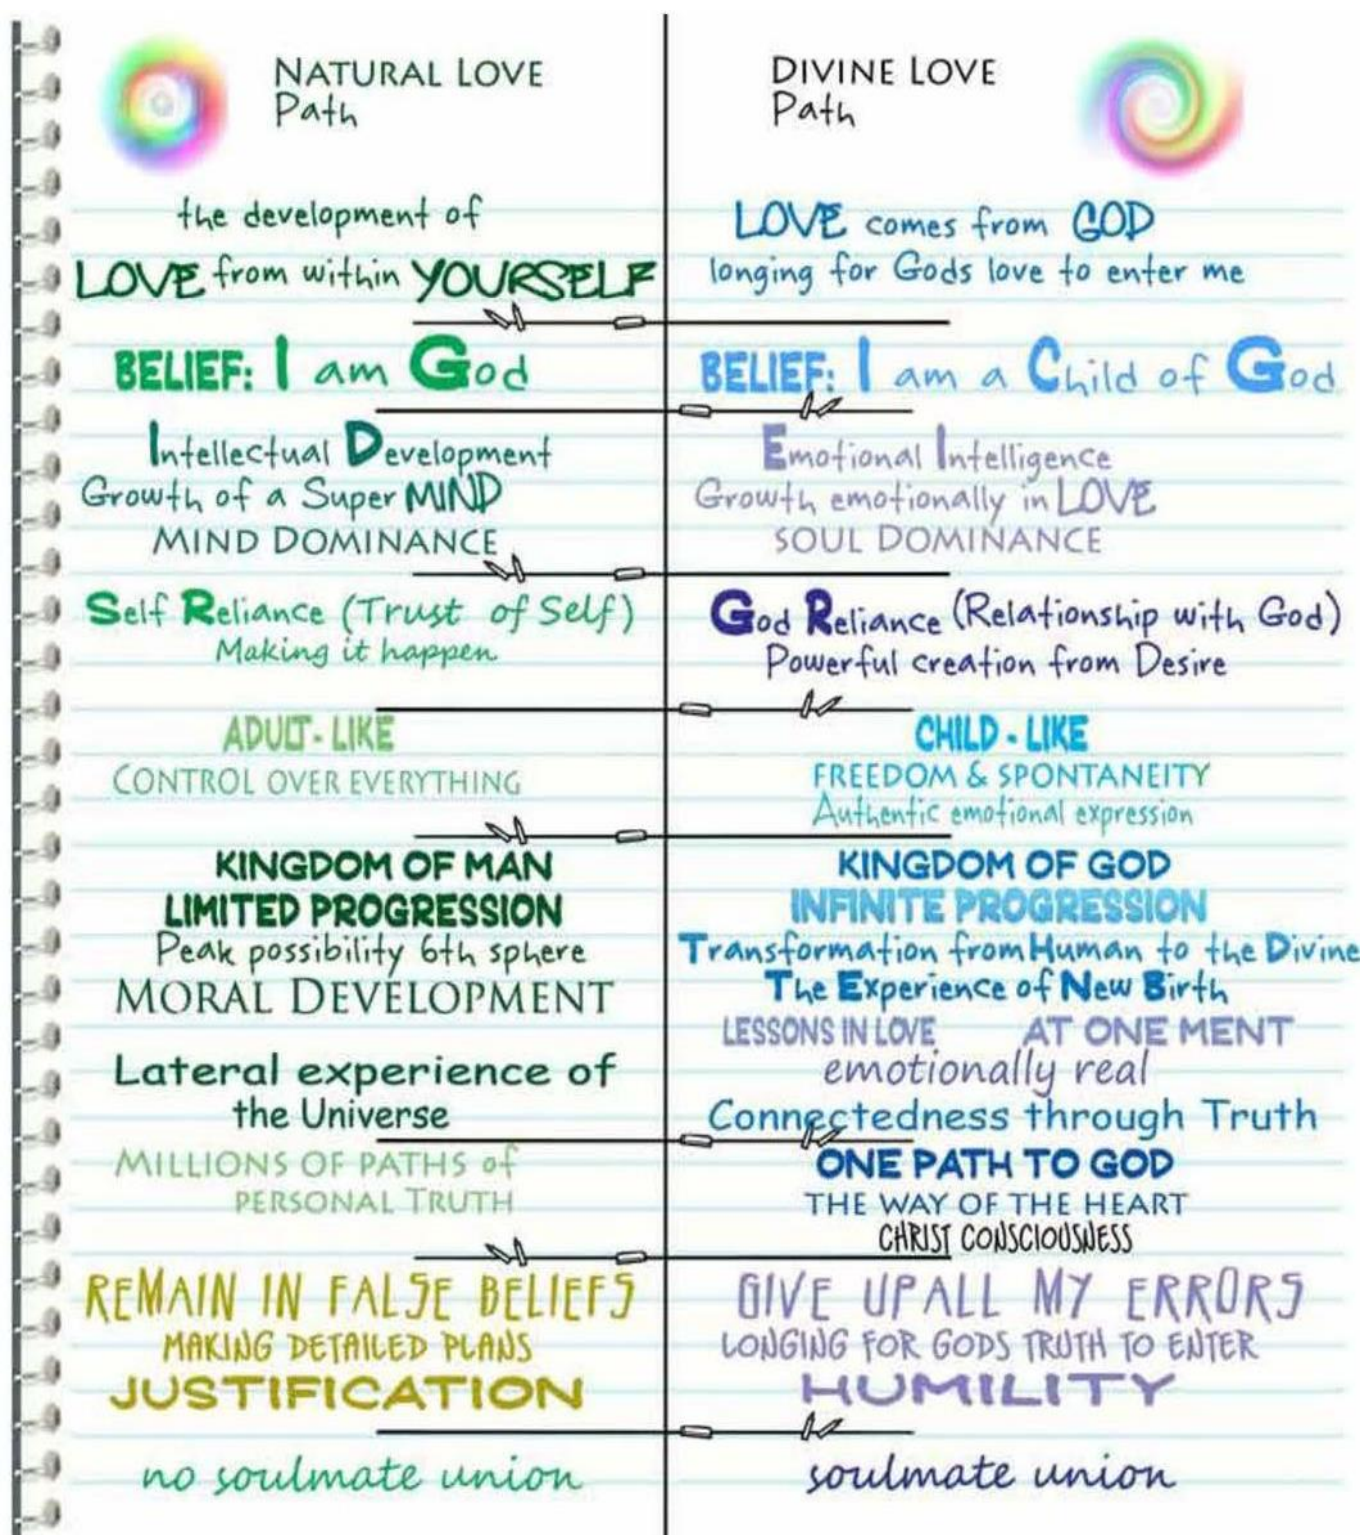 NATURAL LOVE
Path
the development of
LOVE from within YOURSELF
BELIEF: I am God
Intellectual Development
Growth of a Super MIND
MIND DOMINANCE
Self Reliance (Trust of Self)
Making it happen
ADULT-LIKE
CONTROL OVER EVERYTHING
KINGDOM OF MAN
LIMITED PROGRESSION
Peak possibility 6th sphere
MORAL DEVELOPMENT
Lateral experience of
the Universe
MILLIONS OF PATHS of
PERSONAL TRUTH
REMAIN IN FALSE BELIEFS
MAKING DETAILED PLANS
JUSTIFICATION
no soulmate union
DIVINE LOVE
Path
LOVE comes from GOD
longing for Gods love to enter me
BELIEF: I am a Child of God
Emotional Intelligence
Growth emotionally in LOVE
SOUL DOMINANCE
God Reliance (Relationship with God)
Powerful creation from Desire
CHILD-LIKE
FREEDOM & SPONTANEITY
Authentic emotional expression
KINGDOM OF GOD
INFINITE PROGRESSION
Transformation from Human to the Divine
The Experience of New Birth
LESSONS IN LOVE AT ONE MENT
emotionally real
Connectedness through Truth
ONE PATH TO GOD
THE WAY OF THE HEART
CHRIST CONSCIOUSNESS
GIVE UP ALL MY ERRORS
LONGING FOR GODS TRUTH TO ENTER
HUMILITY
soulmate union